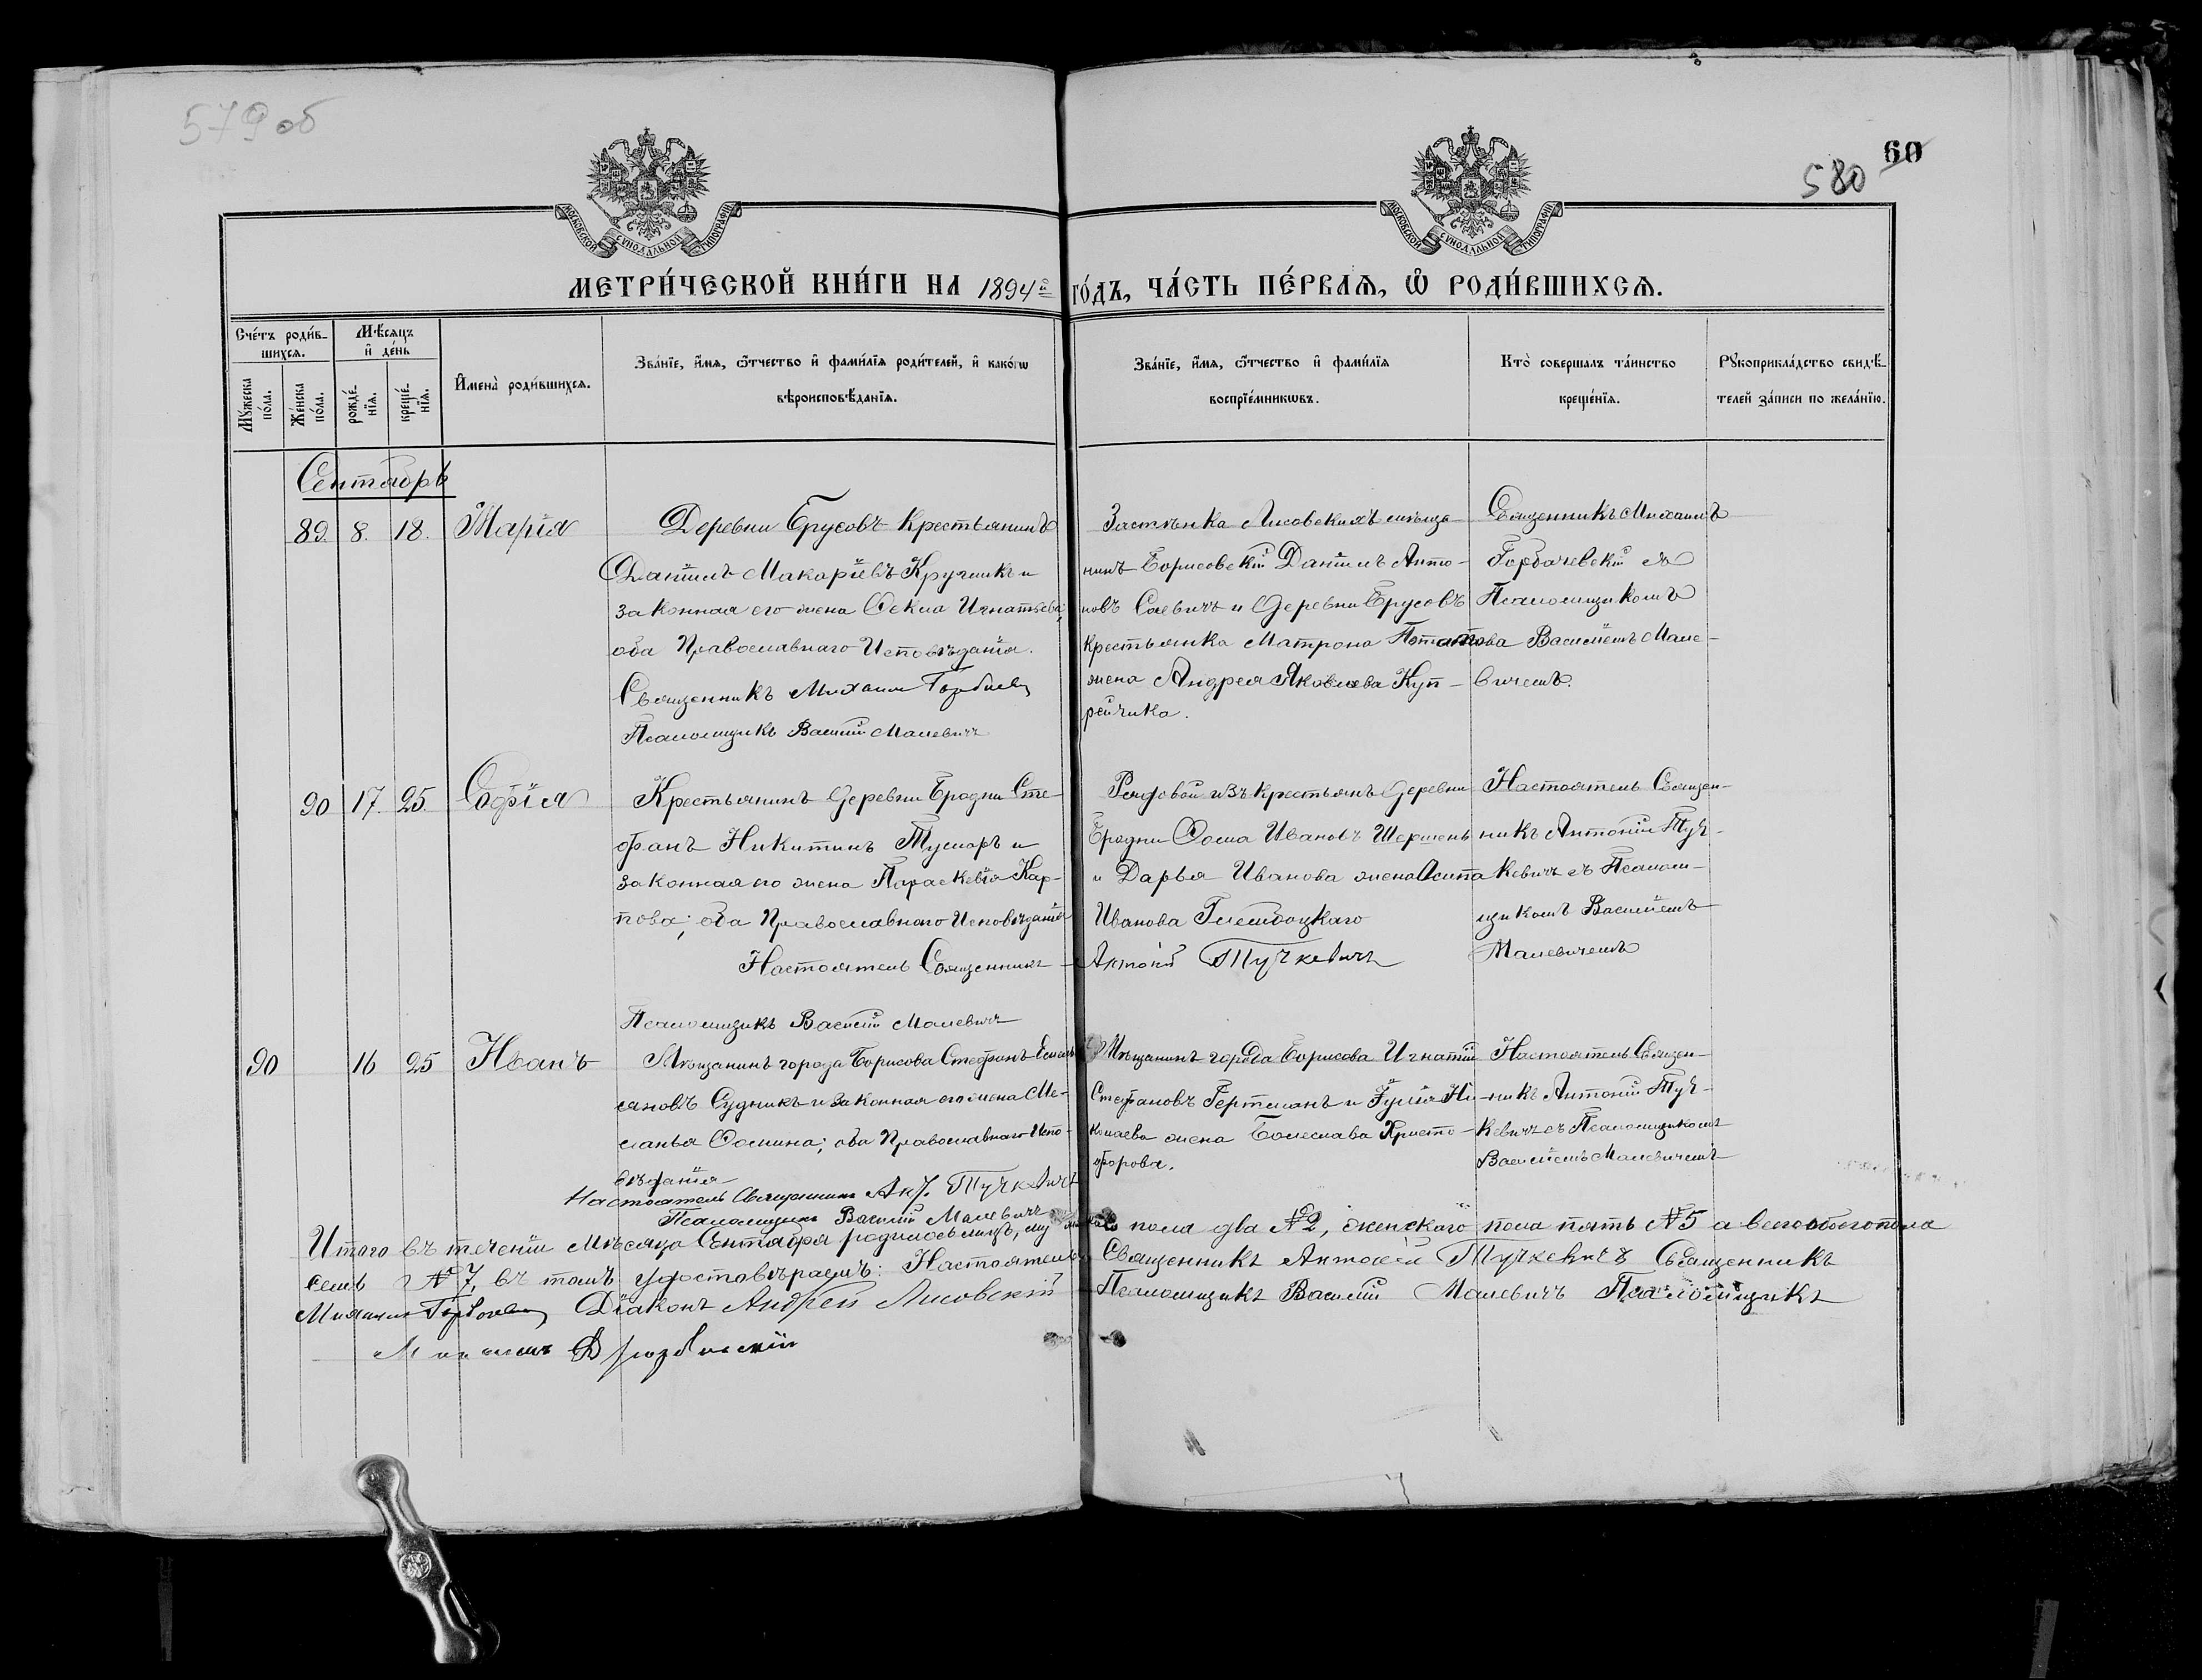 579 об
60
580
МОСКОВСКОЙ СѴНОДАЛЬНОЙ ТИПОГРАФІИ
МОСКОВСКОЙ СѴНОДАЛЬНОЙ ТИПОГРАФІИ
МЕТРИ́ЧЕСКОЙ КНИ́ГИ НА 1894й ГО́ДЪ, ЧА́СТЬ ПЕ́РВАѦ, Ѡ҆ РОДИ́ВШИХСѦ.
Сче́тъ роди́в-
шихсѧ.
Мꙋ́жеска
по́ла.
Же́нска
по́ла.
Мѣ́сѧцъ
и҆ де́нь
рожде́-
нїѧ.
креще́-
нїѧ.
И҆мена̀ роди́вшихсѧ.
Зва́нїе, и҆́мѧ, ѻ҆́тчество и҆ фами́лїѧ роди́телей, и҆ како́гѡ
вѣроисповѣ́данїѧ.
Зва́нїе, и҆́мѧ, ѻ҆́тчество и҆ фами́лїѧ
воспрїе́мникѡвъ.
Кто̀ соверша́лъ та́инство
креще́нїѧ.
Рꙋкоприкла́дство свидѣ́-
телей за́писи по жела́нїю.
Сентябрь
89. 8. 18. Марія
Деревни Брусовъ Крестьянинъ
Даніилъ Макаріевъ Кругликъ и
законная его жена Фекла Игнатьева,
оба Православнаго Исповѣданія.
Священникъ Михаилъ
Псаломщикъ Василій Малевичъ
Застѣнка Лисовскихъ мѣща-
нинъ Борисовскій Даніилъ Анто-
новъ и Деревни Брусовъ
крестьянка Матрона
жена Андрея Яковлева Куп-
рейчика.
Священникъ Михаилъ
Горбачевскій съ
Псаломщикомъ
Василіемъ Мале-
вичемъ.
90 17. 25. Софія
Крестьянинъ Деревни Бродни Сте-
фанъ Никитинъ и
законная его жена Параскевія Кар-
пова; оба Православнаго Исповѣданія
Настоятель Священникъ Антоній Тучкевичъ
Псаломщикъ Василій Малевичъ
Рядовой изъ крестьянъ Деревни
Бродни Фома Ивановъ Шершень
и Дарья Иванова жена Осипа
Иванова
Настоятель Священ-
никъ Антоній Туч-
кевичъ съ Псалом-
щикомъ Василіемъ
Малевичемъ
90 16 25 Иванъ
Мѣщанинъ города Борисова Стефанъ
Судникъ и законная его жена Ме-
ланья Фомина; оба Православнаго Испо-
вѣданія
Настоятель Священникъ Ант. Тучкевичъ
Псаломщикъ Василій Малевичъ
Мѣщанинъ города Борисова Игнатій
Стефановъ Гертманъ и Юлія Ни-
колаева жена Болеслава Христо-
форова.
Настоятель Священ-
никъ Антоній Туч-
кевичъ съ Псаломщикомъ
Василіемъ Малевичемъ
Итого въ теченіи мѣсяца Сентября родилось пола два №2, женскаго пола пять №5 а всего обоего пола
семь №7, въ томъ удостовѣряемъ: Настоятель Священникъ Антоній Тучкевичъ Священникъ
Михаилъ Діаконъ Андрей Лисовскій Псаломщикъ Василій Малевичъ Псаломщикъ